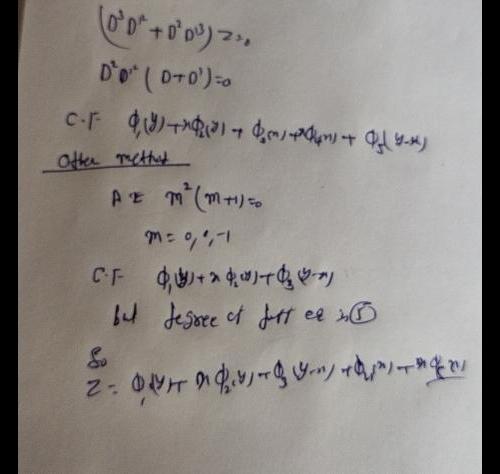 (D³D'² + D²D'³) z = 0
D²D'² (D+D') = 0
C.F φ₁(y) + xφ₂(y) + φ₃(x) + yφ₄(x) + φ₅(y-x)
Other method
A E m²(m+1) = 0
m = 0, 0, -1
C.F φ₁(y) + x φ₂(y) + φ₃(y-x)
but degree of diff eq is 5
So
Z = φ₁(y) + xφ₂(y) + φ₃(y-x) + φ₄(x) +